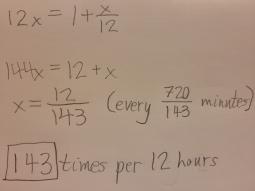 12x = 1 + x/12
144x = 12 + x
x = 12/143 (every 720/143 minutes)
143 times per 12 hours